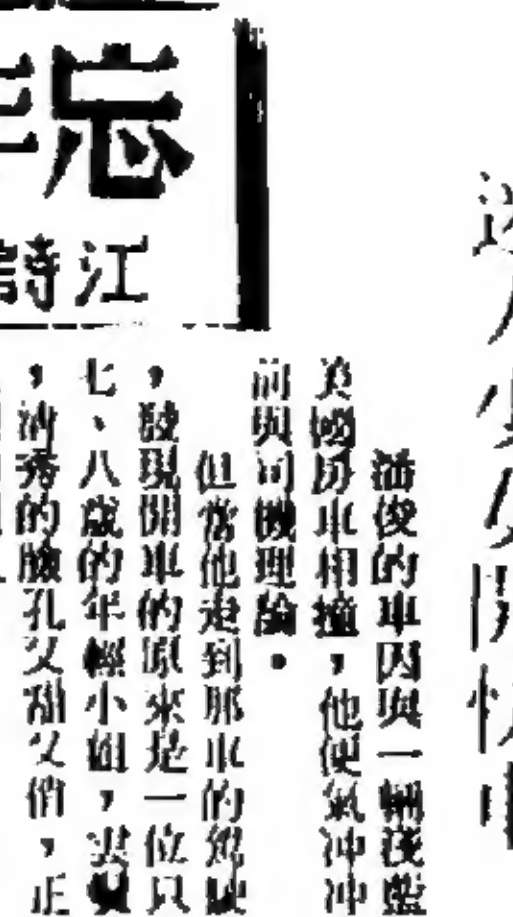 忘
江詩
潘俊的車因與一輛淺藍
美國房車相撞，他便氣冲冲
前與司機理論。
但當他走到那車的駕駛
，發現開車的原來是一位只
七、八歲的年輕小姐，雲鬢
，清秀的臉孔又甜又俏，正